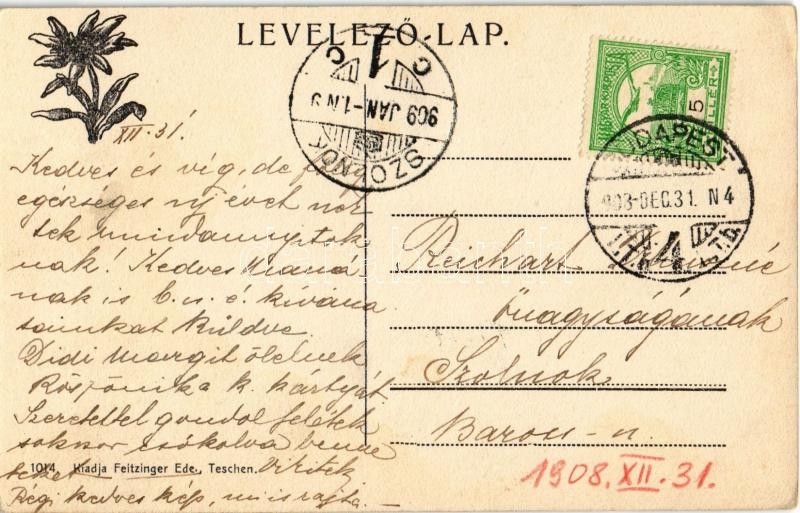 LEVELEZŐ-LAP.
XII. 31.
Kedves és víg, de
egészséges uj évet
tek mindannyiotok
nak! Kedves
nak is b. u. é. kívána
tainkat küldve
Didi Margit ölelnek
k. kártyát
Szeretettel gondol felétek
sokszor csókolva benne
teket
Régi kedves kép, mi is rajta.
1014 Kiadja Feitzinger Ede, Teschen.
SZOLNOK
909 JAN -1. N 9
C 1 C
5
BUDAPEST
908 DEC. 31. N 4
Reichart
Őnagyságának
Szolnok
Baross-u.
1908. XII. 31.